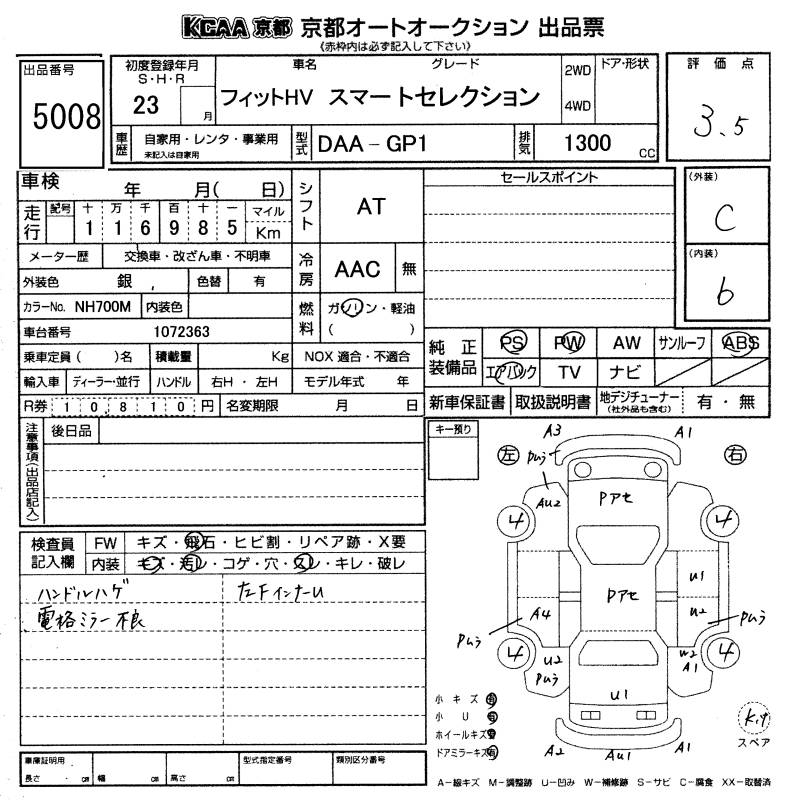 KCAA 京都 京都オートオークション 出品票
《赤枠内は必ず記入して下さい》
出品番号
5008
初度登録年月
S・H・R
23
月
車名
グレード
フィットHV スマートセレクション
2WD
4WD
ドア・形状
評価点
3.5
車歴
自家用・レンタ・事業用
未記入は自家用
型式
DAA-GP1
排気
1300
CC
車検
年 月( 日)
シフト
AT
セールスポイント
(外装)
C
走行
記号
十 万 千 百 十 一
1 1 6 9 8 5
マイル
Km
メーター歴
交換車・改ざん車・不明車
冷房
AAC
無
(内装)
b
外装色
銀
色替
有
カラーNo.
NH700M
内装色
燃料
ガソリン・軽油
( )
車台番号
1072363
純正装備品
PS
PW
AW
サンルーフ
ABS
エアバック
TV
ナビ
乗車定員( )名
積載量
Kg
NOX 適合・不適合
輸入車
ディーラー・並行
ハンドル
右H・左H
モデル年式 年
新車保証書
取扱説明書
地デジチューナー
(社外品も含む)
有・無
R券
10,810円
名変期限
月 日
注意事項(出品店記入)
後日品
キー預り
左
右
A3
A1
pムラ
AU2
Pアセ
4
4
U1
Pアセ
A4
U2
pムラ
pムラ
4
4
U2
pムラ
W2
A1
U1
A2
AU1
A1
検査員記入欄
FW
キズ・飛石・ヒビ割・リペア跡・X要
内装
キズ・汚レ・コゲ・穴・スレ・キレ・破レ
ハンドルハゲ
左FインナーU
電格ミラー不良
小キズ 有
小U 有
ホイールキズ 有
ドアミラーキズ 有
キット
スペア
車庫証明用
長さ ・ cm
幅 cm
高さ cm
型式指定番号
類別区分番号
A-線キズ M-調整跡 U-凹み W-補修跡 S-サビ C-腐食 XX-取替済